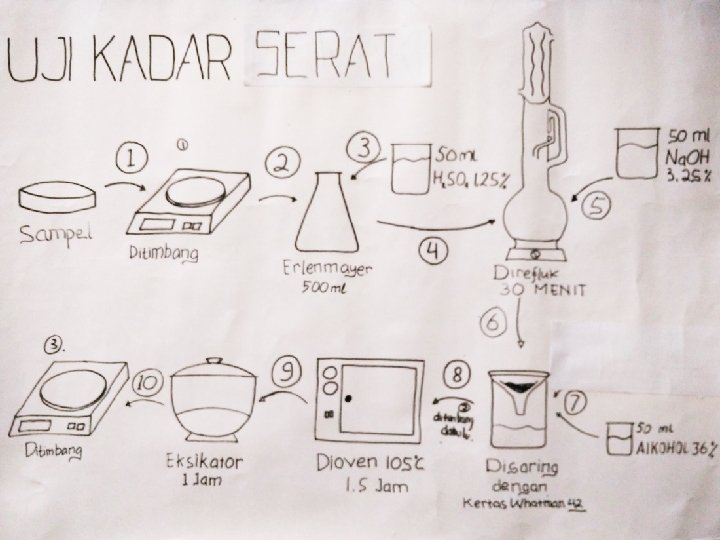 UJI KADAR SERAT
①
1
2
3
50 ml
H2SO4 1.25%
50 ml
NaOH
3.25%
5
Sampel
Ditimbang
4
Erlenmayer
500 ml
Direfluk
30 MENIT
6
③.
10
9
8
②
ditimbang
dahulu
7
50 ml
AlKOHOL 36%
Ditimbang
Eksikator
1 Jam
Dioven 105℃
1.5 Jam
Disaring
dengan
Kertas Whatman 42